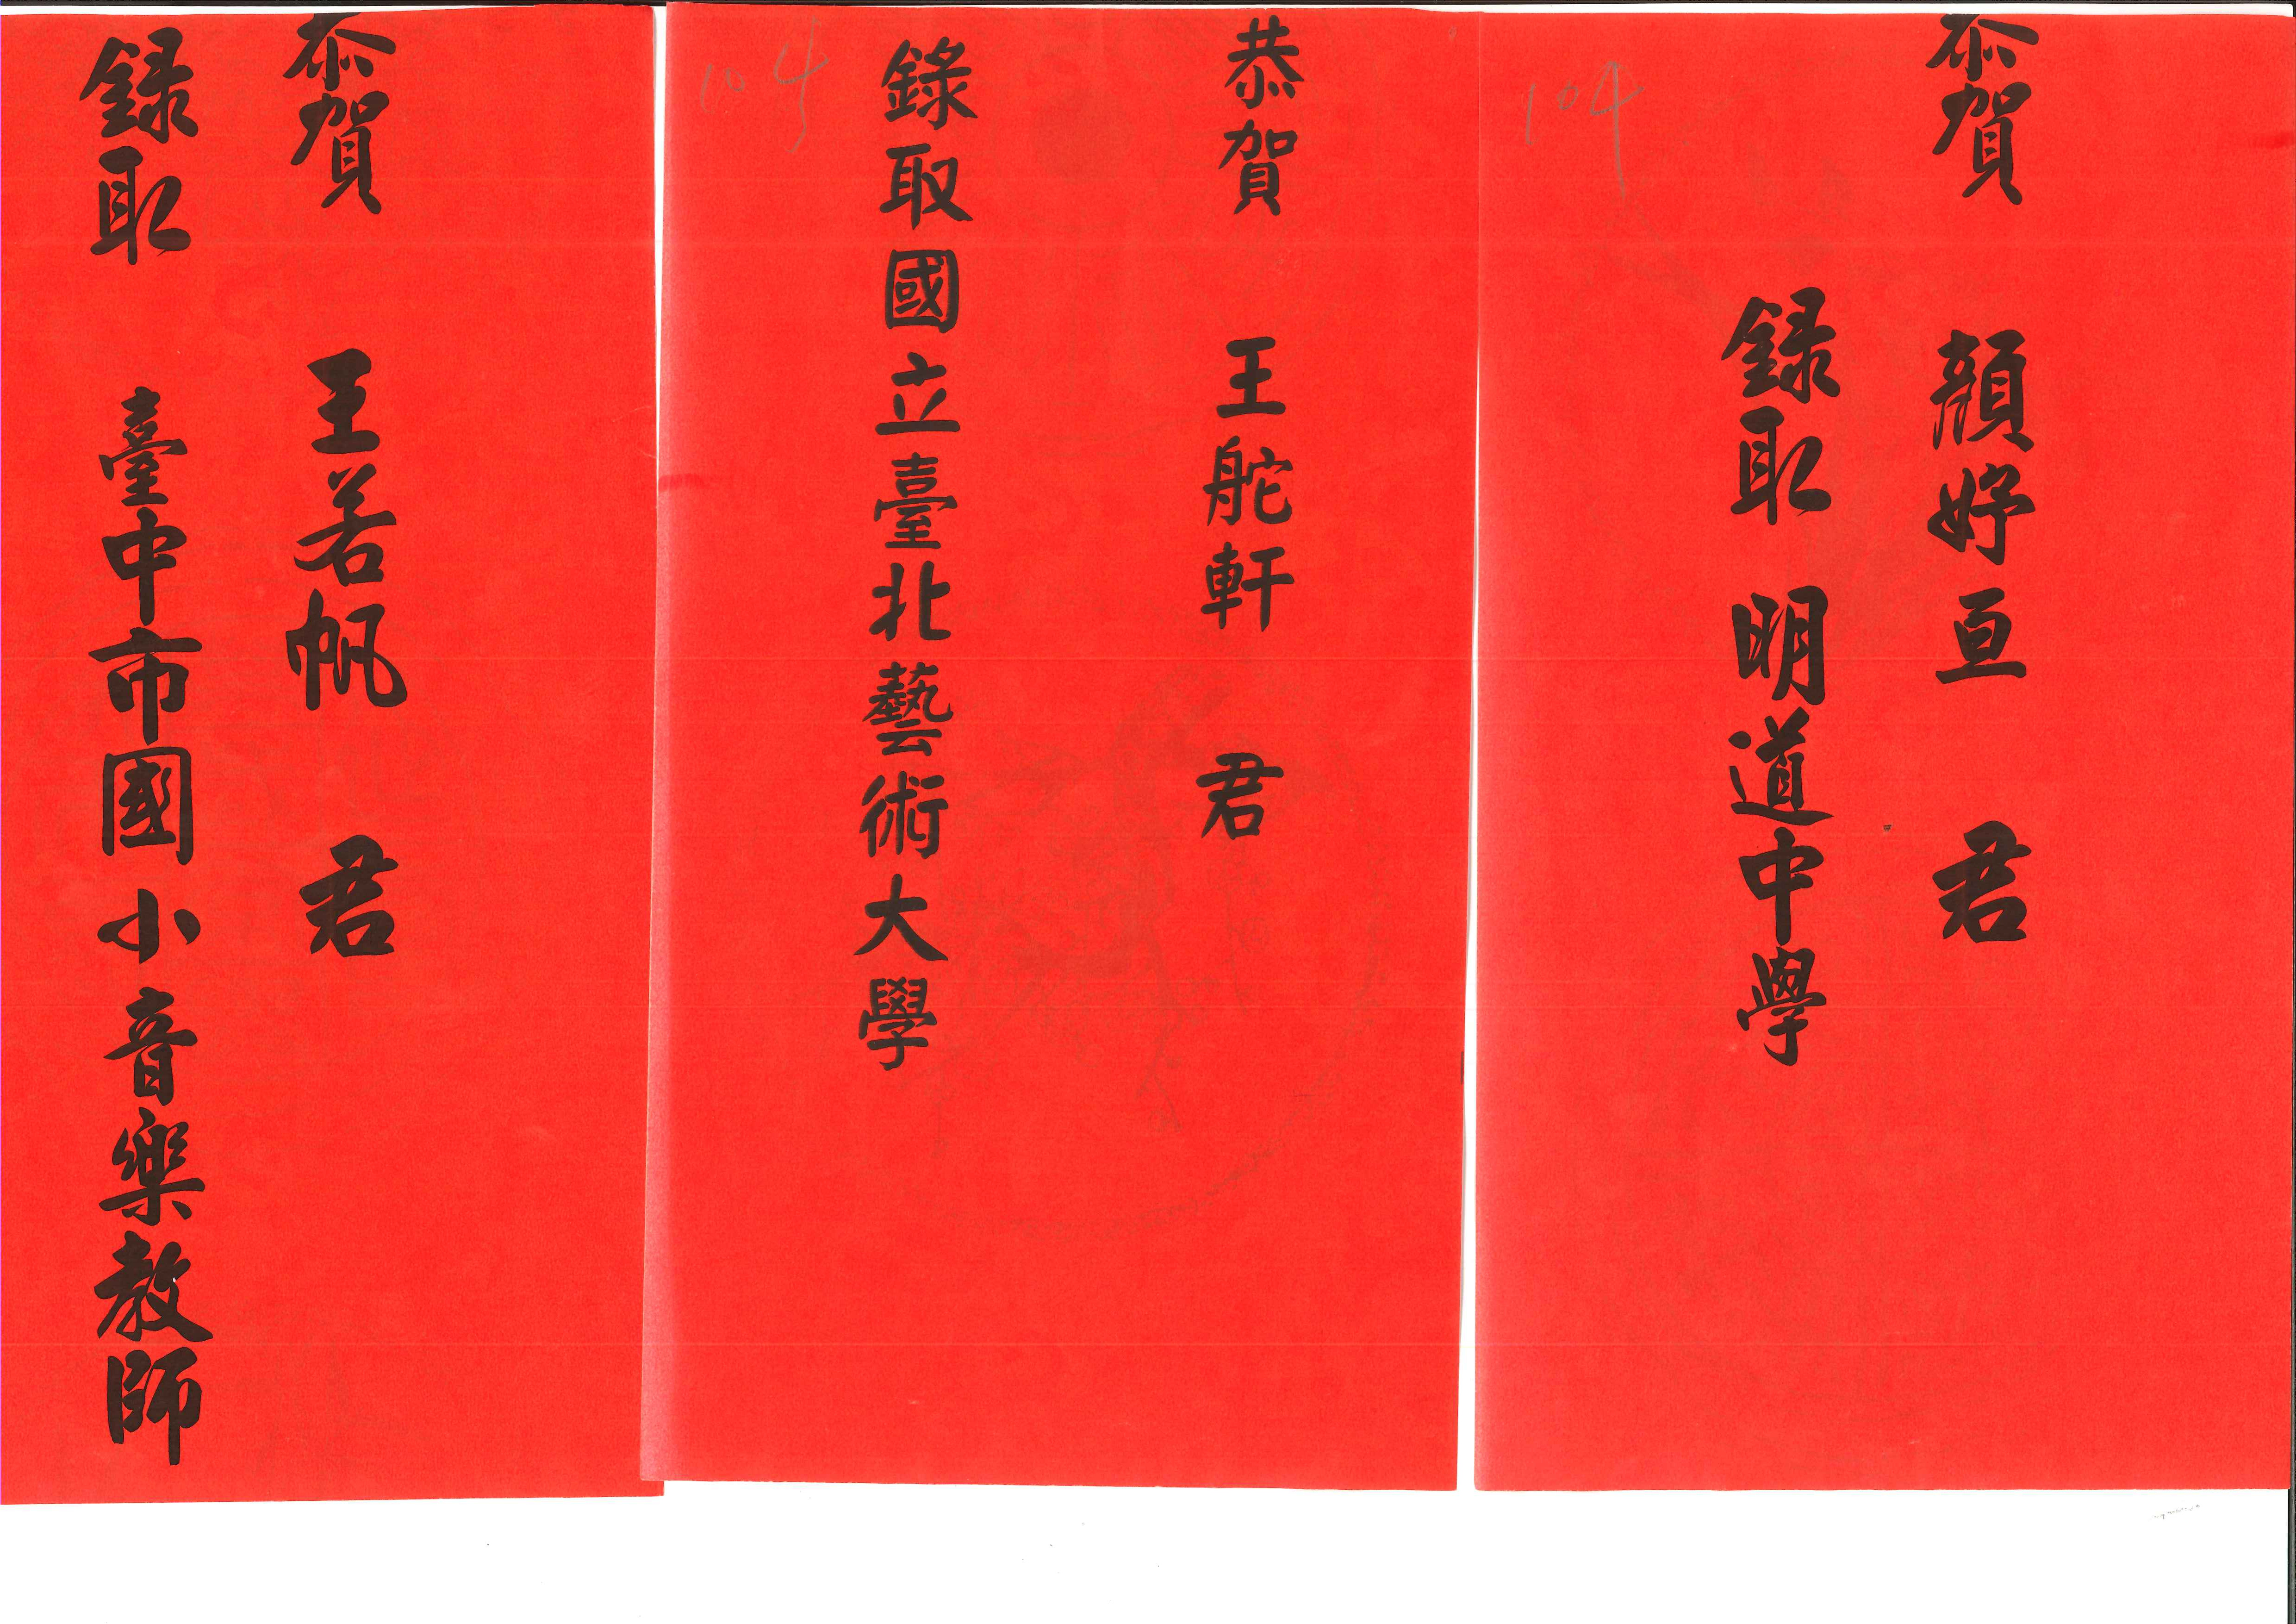 恭賀 顏妤亘 君
錄取 明道中學
104
恭賀 王舵軒 君
錄取國立臺北藝術大學
104
恭賀 王若帆 君
錄取 臺中市國小音樂教師